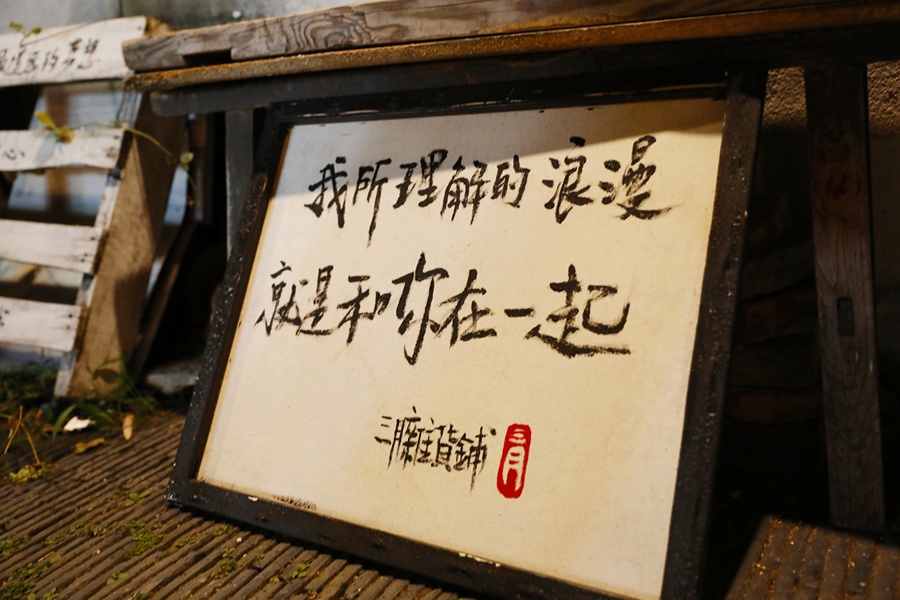 我所理解的浪漫
就是和你在一起
三朧雜貨鋪
三月
的夢想
心